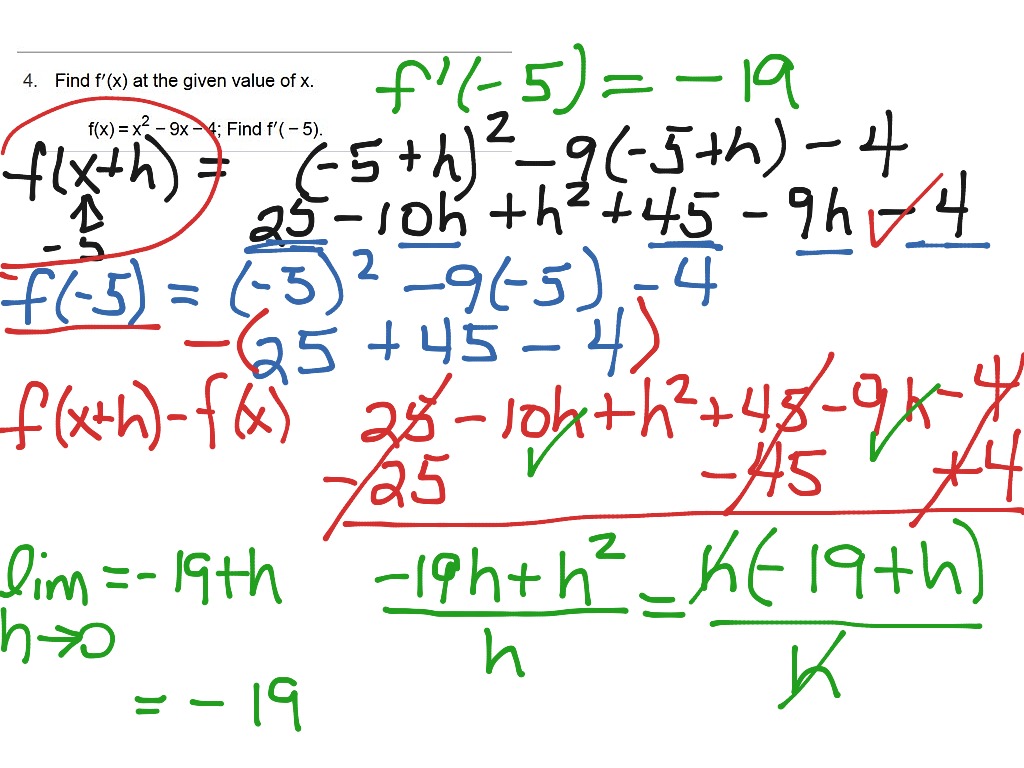 4. Find f′(x) at the given value of x.
f′(-5) = -19
f(x) = x² - 9x - 4; Find f′( - 5).
f(x+h) = (-5+h)² - 9(-5+h) - 4
-5
25 - 10h + h² + 45 - 9h - 4
f(-5) = (-5)² - 9(-5) - 4
-(25 + 45 - 4)
f(x+h) - f(x) 25 - 10h + h² + 45 - 9h - 4
-25 - 45 + 4
lim = -19+h
h→0
-19h + h² / h = h(-19+h) / h
= -19